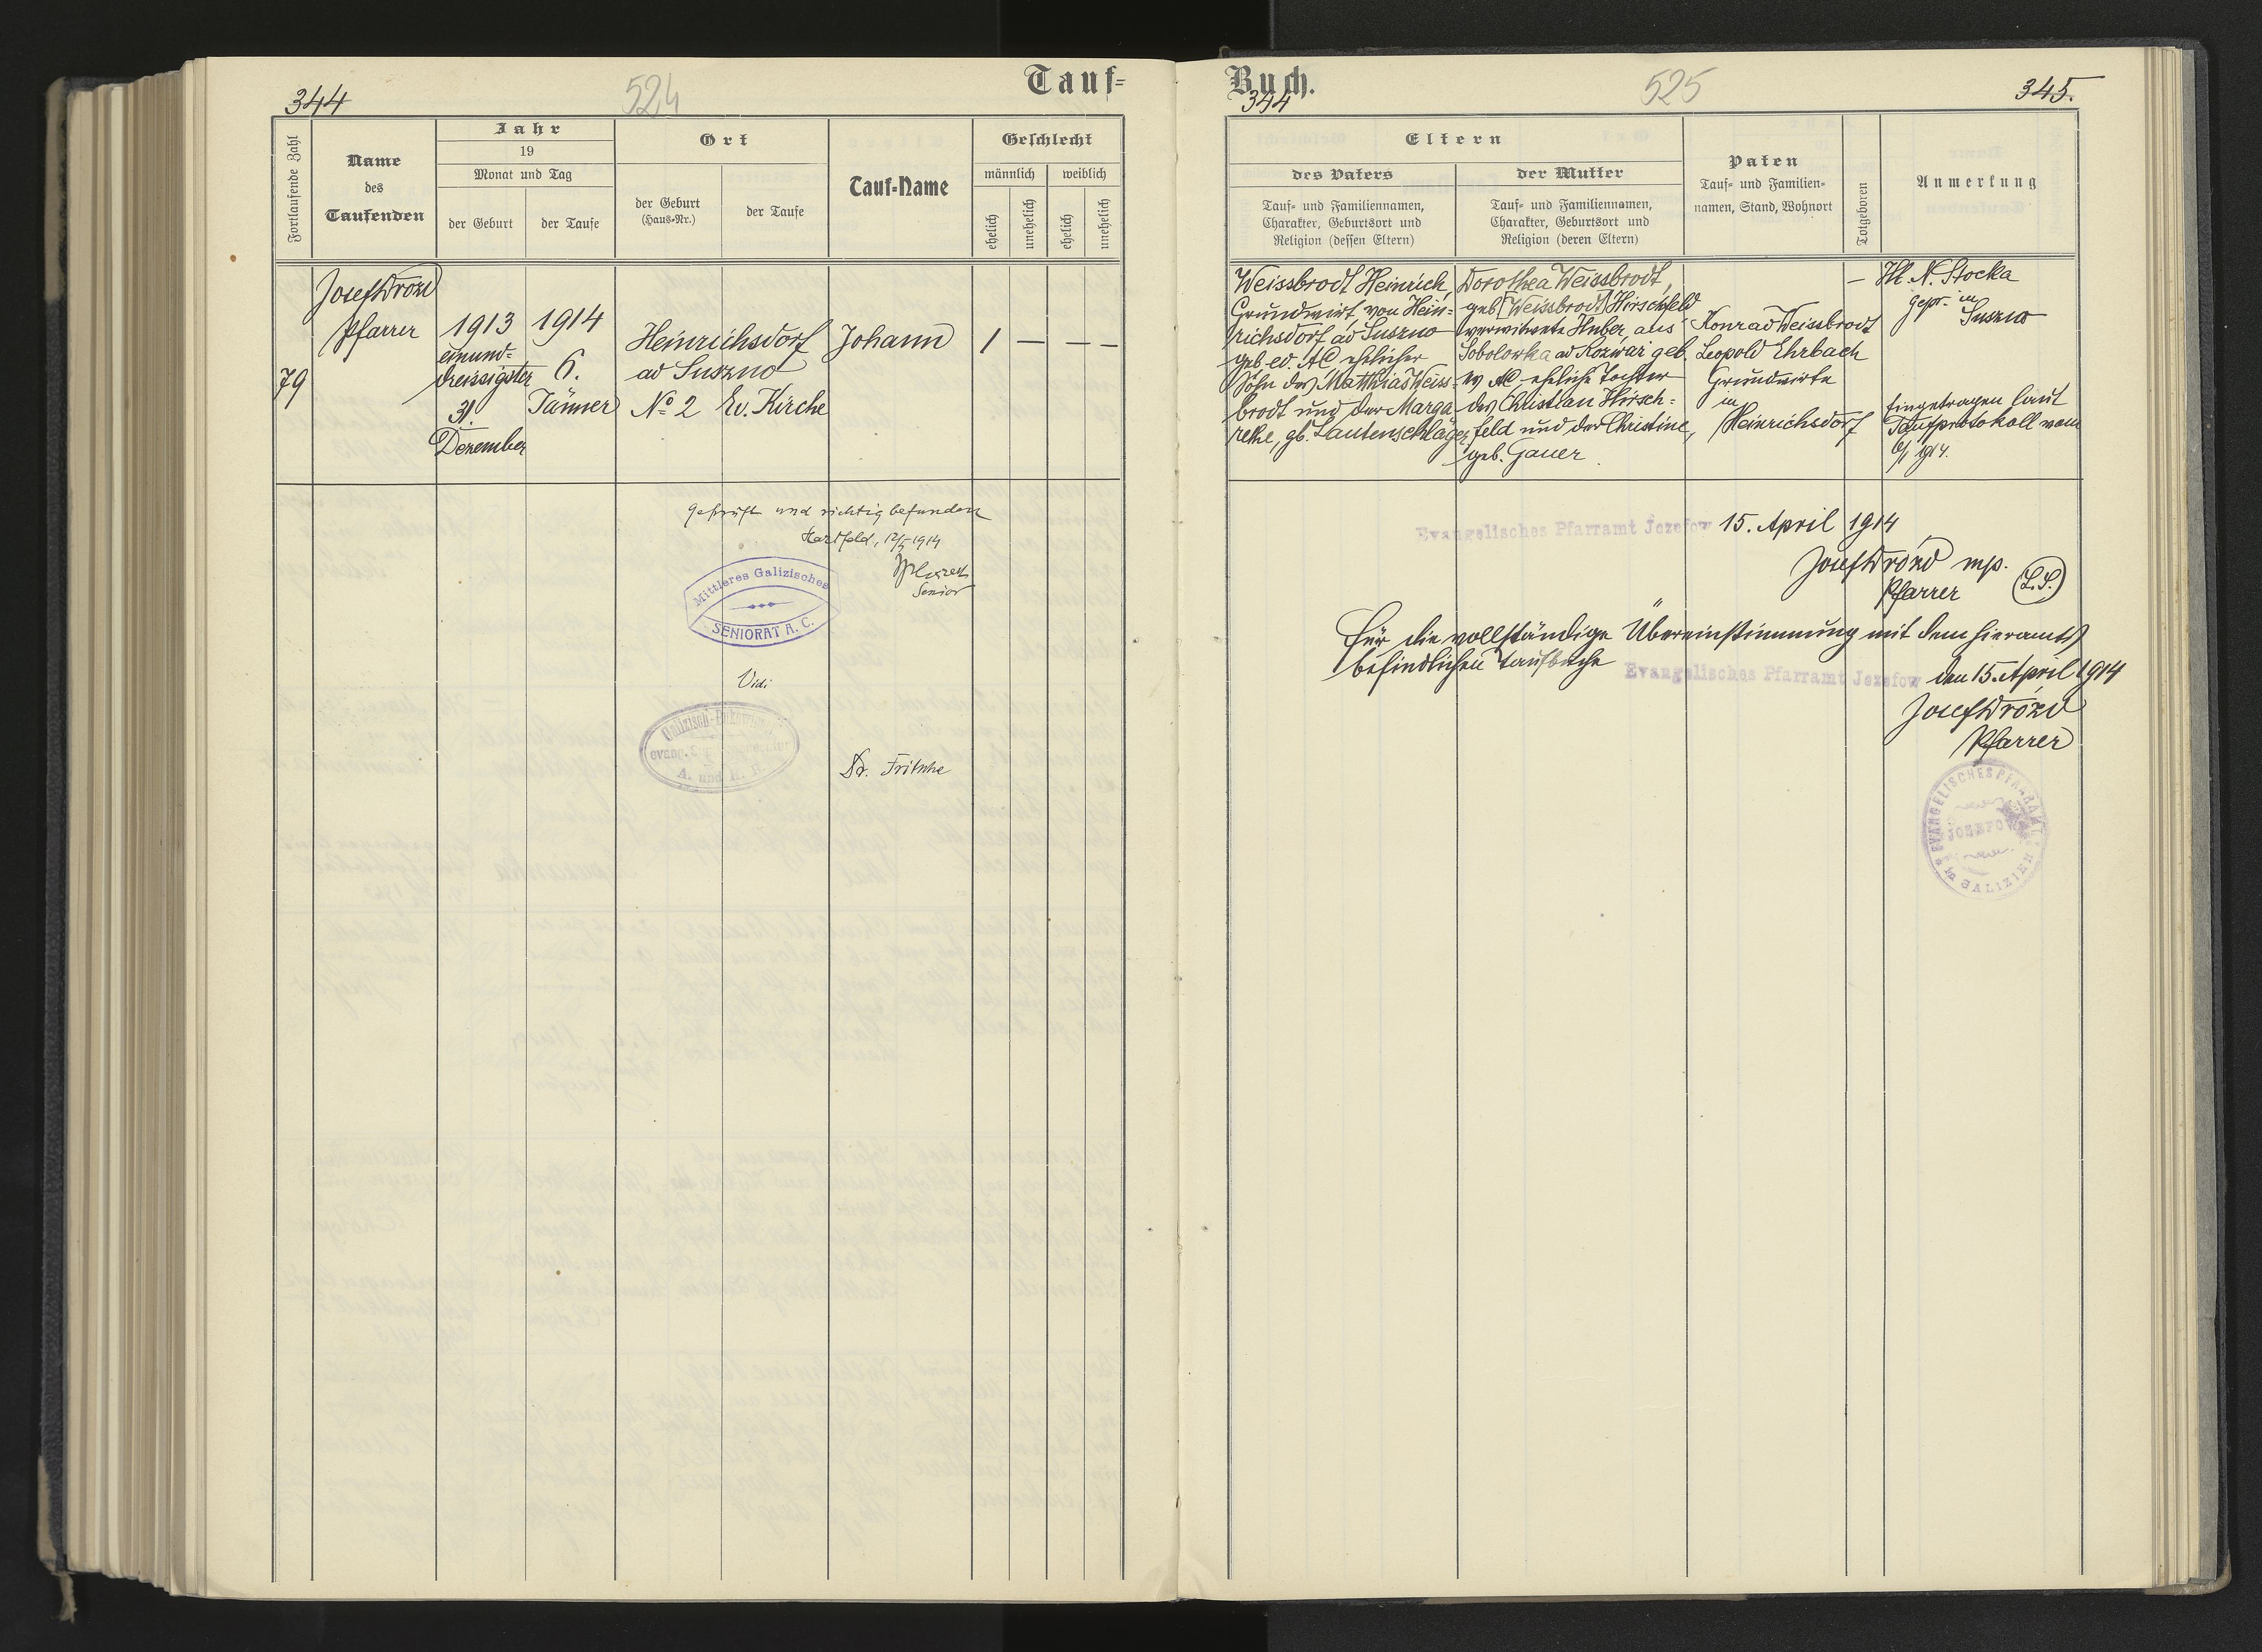 344
524
Tauf-
Fortlaufende Zahl
Name
des
Taufenden
Jahr
19
Monat und Tag
der Geburt
der Taufe
Ort
der Geburt
(Haus-Nr.)
der Taufe
Tauf-Name
Geschlecht
männlich
weiblich
ehelich
unehelich
ehelich
unehelich
79
Josef Drozd
Pfarrer
1913
einund-
dreissigster
31.
Dezember
1914
6.
Jänner
Heinrichsdorf
ad Suszno
No 2
Ev. Kirche
Johann
1 — — —
geprüft und richtig befunden
Hartfeld, 12/5 1914
Senior
Mittleres Galizisches
SENIORAT A. C.
Vidi
A. und H. B.
Dr. Fritsche
Buch.
344
525
345.
Eltern
des Vaters
Tauf- und Familiennamen,
Charakter, Geburtsort und
Religion (dessen Eltern)
der Mutter
Tauf- und Familiennamen,
Charakter, Geburtsort und
Religion (deren Eltern)
Paten
Tauf- und Familien-
namen, Stand, Wohnort
Totgeboren
Anmerkung
Weissbrodt Heinrich,
Grundwirt, von Hein-
richsdorf ad Suszno
geb. ev. AC ehelicher
Sohn des Matthias Weiss-
brodt und der Marga-
rethe, gb. Lautenschläger
Dorothea Weissbrodt,
geb. [Weissbrodt] Hirschfeld
verwitwete Huber, aus
Sobolowka ad geb.
ev AC eheliche Tochter
des Christian Hirsch-
feld und der Christine,
geb. Gauer.
Konrad Weissbrodt
Leopold Ehrbach
Grundwirte
in
Heinrichsdorf
—
N. Stocka
gepr. in
Suszno
Eingetragen laut
Taufprotokoll vom
6/1 1914.
Evangelisches Pfarramt Jozefow 15. April 1914
Josef Drozd mp.
Pfarrer (L.S.)
Für die vollständige Übereinstimmung mit dem hieramts
befindlichen Taufbuche
Evangelisches Pfarramt Jozefow den 15. April 1914
Josef Drozd
Pfarrer
EVANGELISCHES PFARRAMT
JOZEFOW
in GALIZIEN